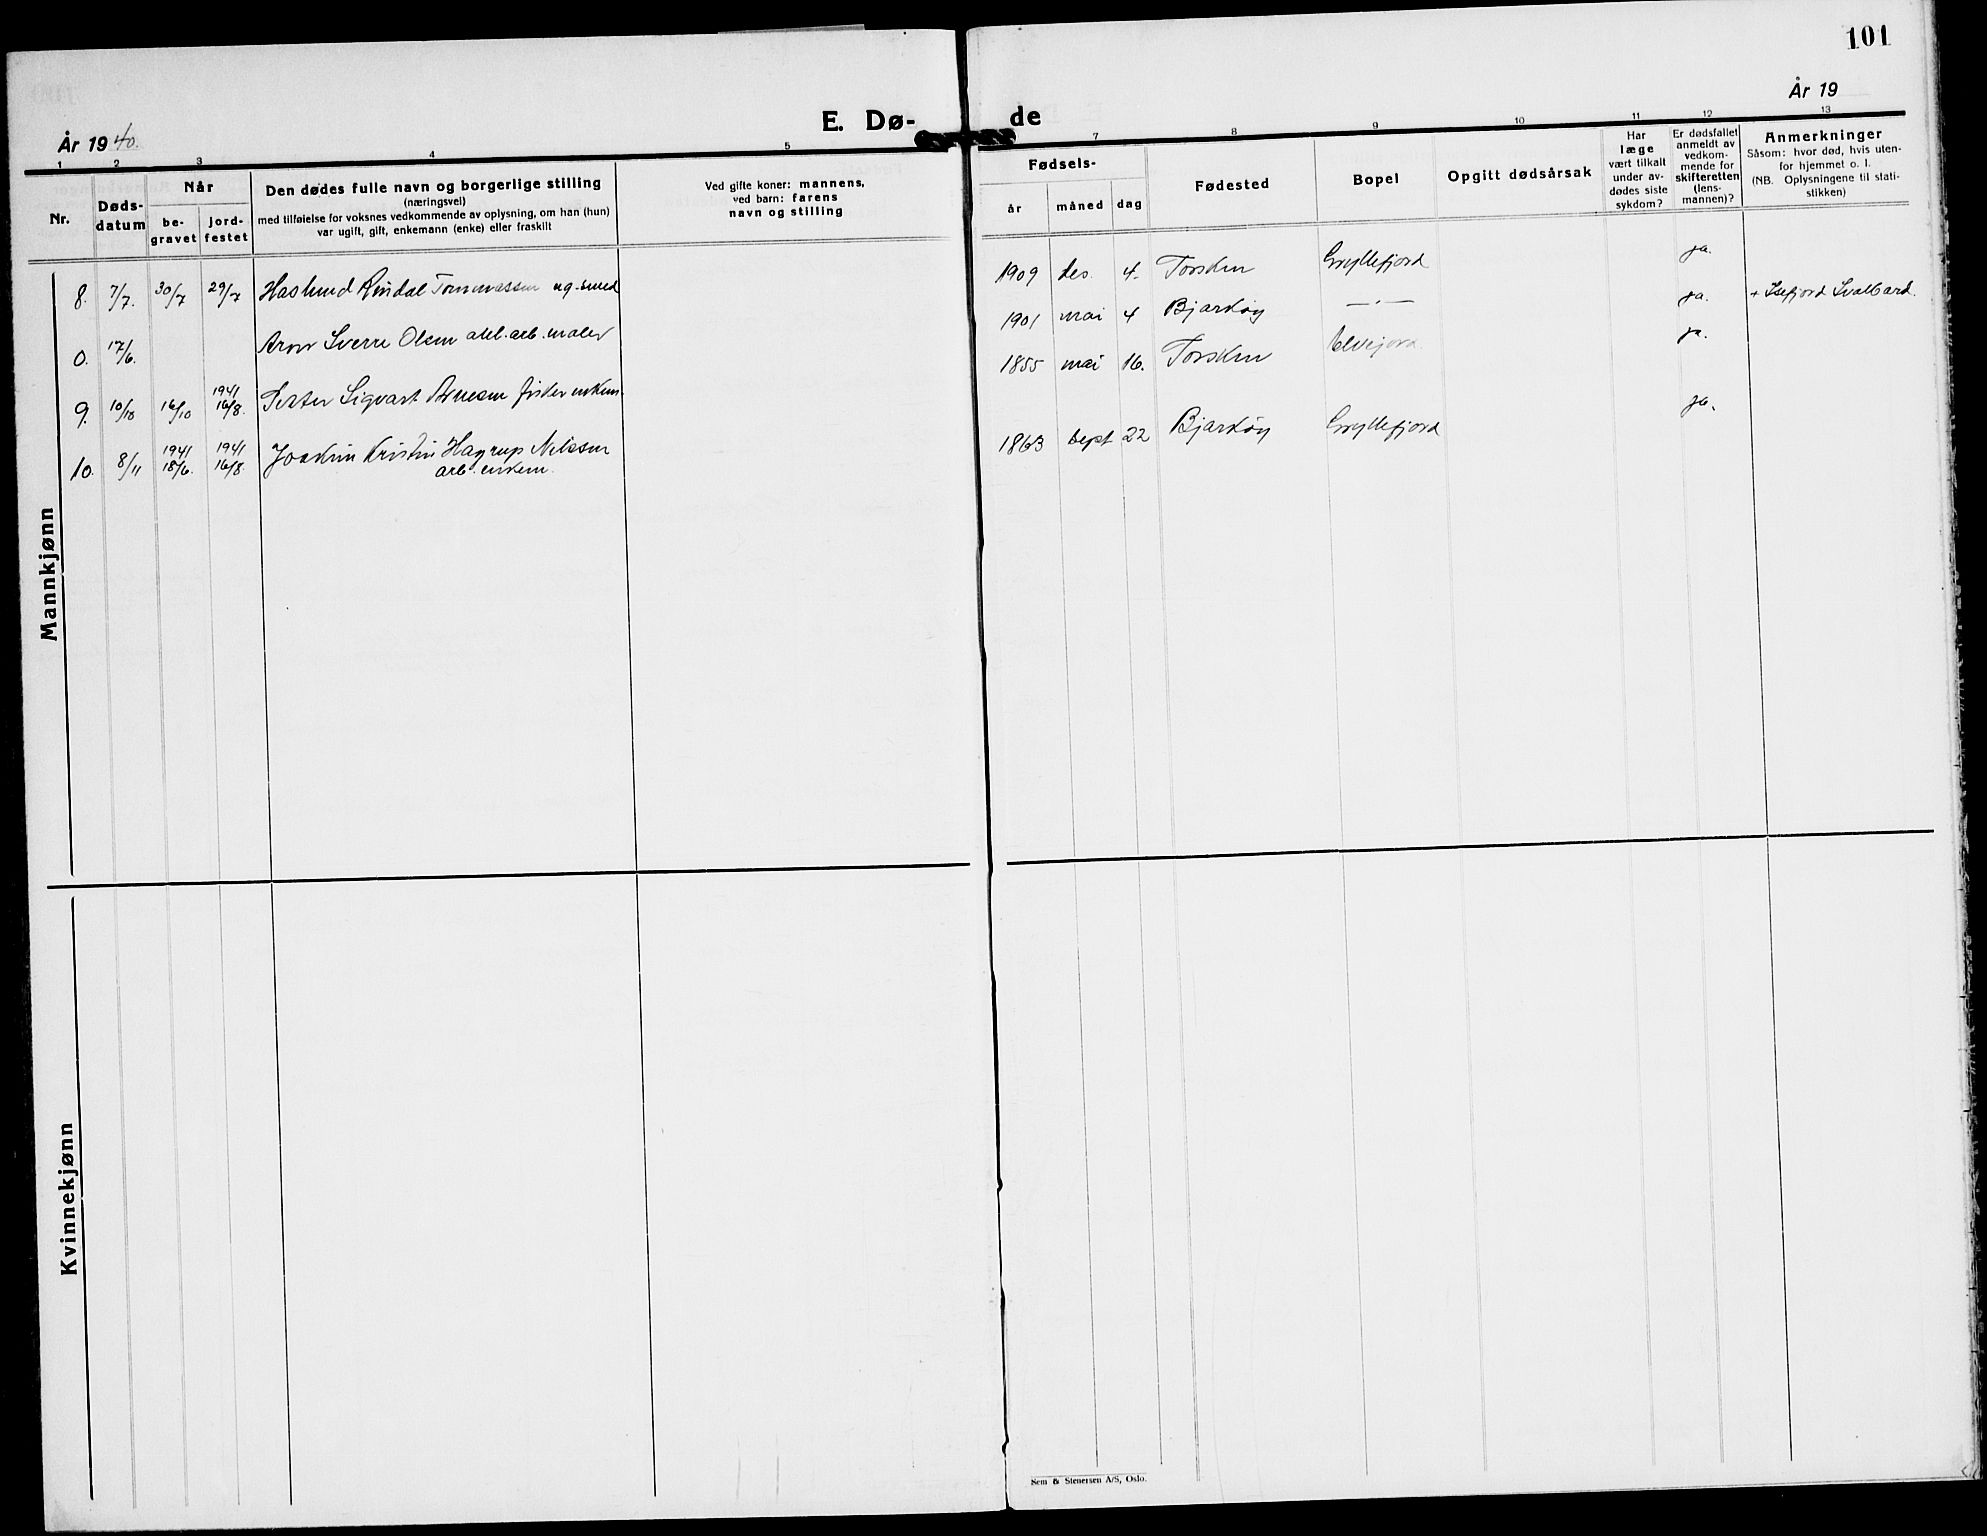 101
År 1940.
E. Dø-
de
År 19
1 2 3 4 5
7 8 9 10 11 12 13
Nr.
Døds-
datum
Når
be-
gravet
jord-
festet
Den dødes fulle navn og borgerlige stilling
(næringsvei)
med tilføielse for voksnes vedkommende av oplysning, om han (hun)
var ugift, gift, enkemann (enke) eller fraskilt
Ved gifte koner: mannens,
ved barn: farens
navn og stilling
Fødsels-
år måned dag
Fødested
Bopel
Opgitt dødsårsak
Har
læge
vært tilkalt
under av-
dødes siste
sykdom?
Er dødsfallet
anmeldt av
vedkom-
mende for
skifteretten
(lens-
mannen)?
Anmerkninger
Såsom: hvor død, hvis uten-
for hjemmet o. l.
(NB. Oplysningene til stati-
stikken)
Mannkjønn
8. 7/7. 30/7 29/7 Haslund Rindal Tommassen ug. smed
1909 des. 4. Torsken Gryllefjord ja.
0. 17/6. Aron Sverre Olsen maler
1901 mai 4 Bjarkøy —"— ja. + Isefjord Svalbard.
9. 10/10 16/10 1941 16/8. Peder Sigvart Arnesen fisker enkem.
1855 mai 16. Torsken ja.
10. 8/11 1941 18/6. 1941 16/8. Joakim Kristin Hagrup Nilssen
arb. enkem.
1863 sept 22 Bjarkøy Gryllefjord ja.
Kvinnekjønn
Sem & Stenersen A/S, Oslo.